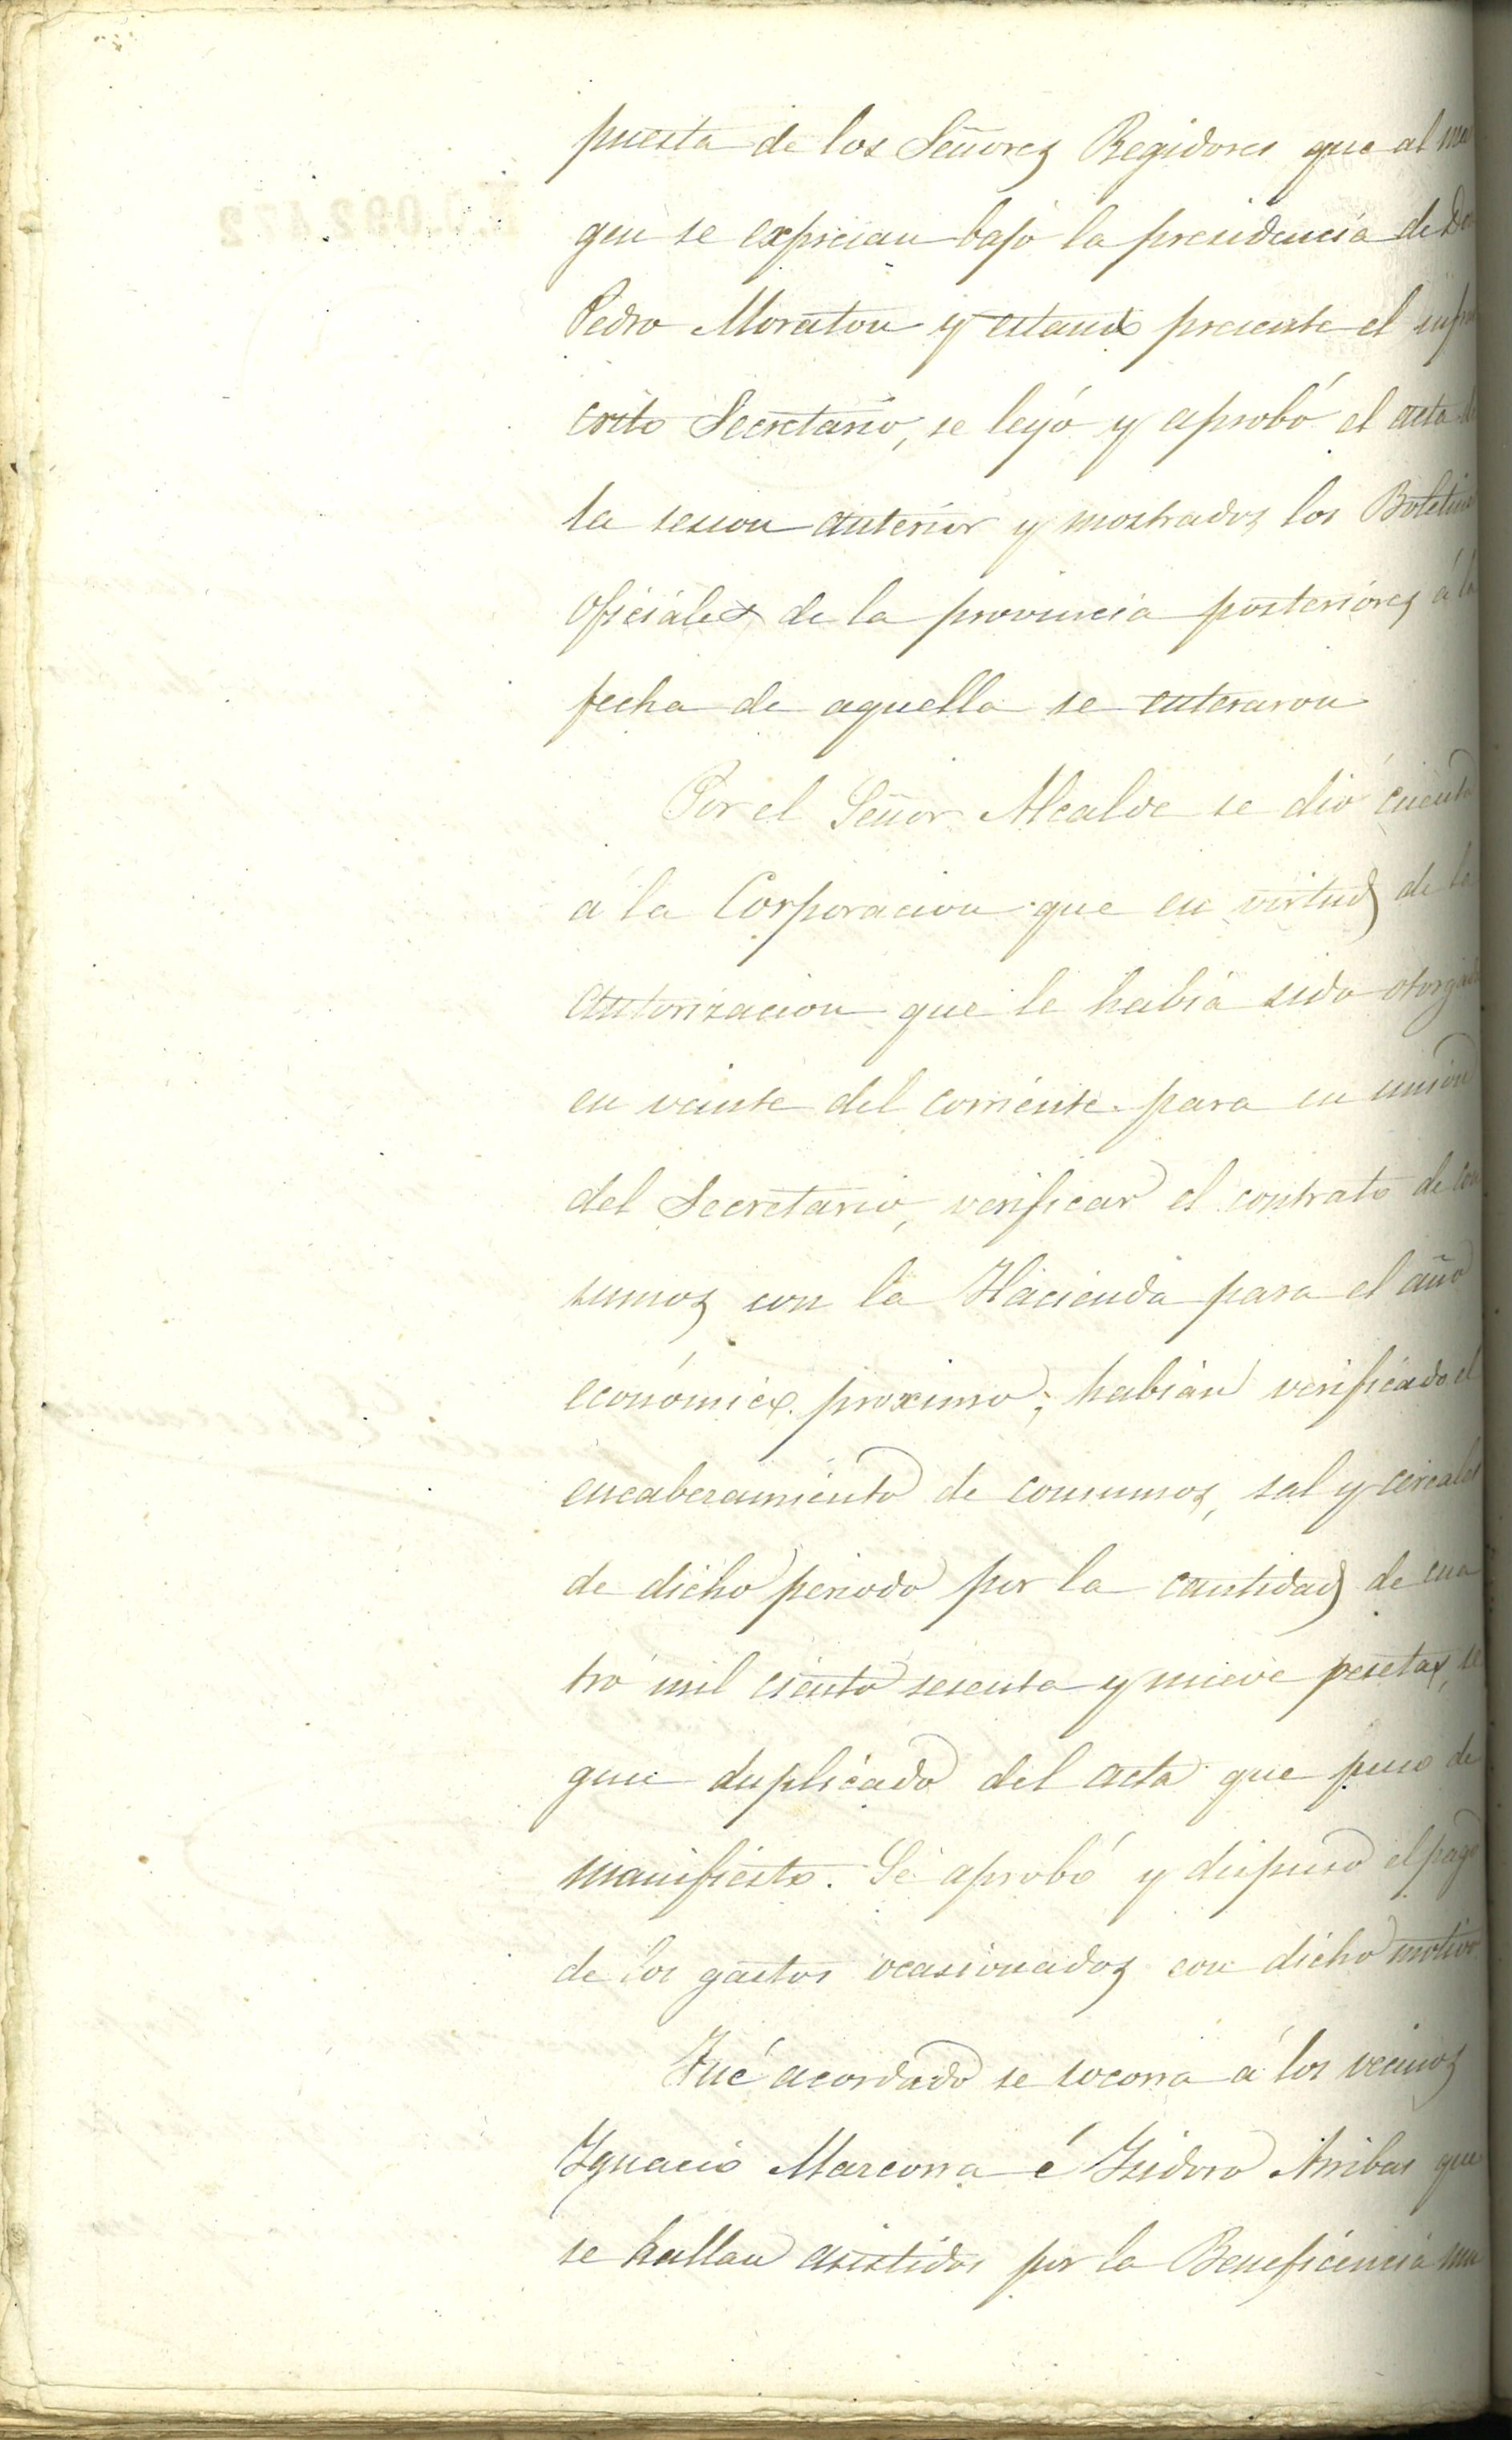 puesta de los Señores Regidores que al mar
gen se expresan bajo la presidencia de Don
Pedro Moraton y estando presente el infras
crito Secretario, se leyó y aprobó el acta de
la sesion anterior y mostrados los Boletines
oficiales de la provincia posteriores á la
fecha de aquella se enteraron
Por el Señor Alcalde se dió cuenta
á la Corporacion que en virtud de la
autorizacion que le habia sido otorgada
en veinte del corriente para en union
del Secretario, verificar el contrato de con
sumos con la Hacienda para el año
económico proximo; habian verificado el
encabezamiento de consumos, sal y cereales
de dicho periodo por la cantidad de cua
tro mil ciento sesenta y nueve pesetas, se
gun duplicado del acta que puso de
manifiesto. Se aprobó y dispuso el pago
de los gastos ocasionados con dicho motivo
Fué acordado se socorra á los vecinos
Ygnacio Marcorra é Ysidoro Arribas que
se hallan asistidos por la Beneficencia mu